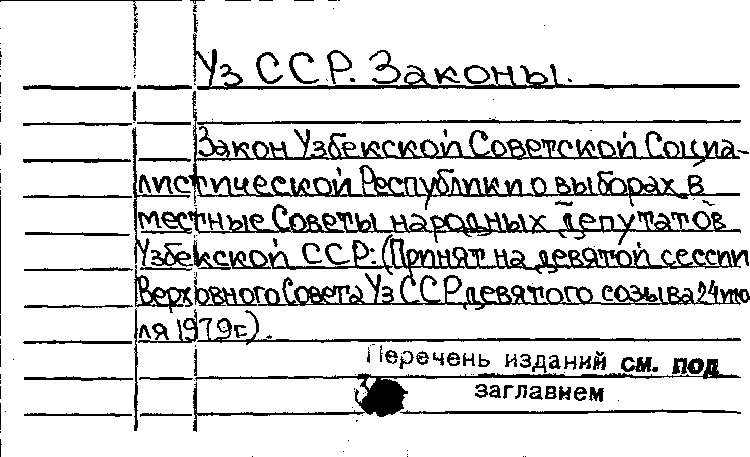 Уз ССР. Законы.
Закон Узбекской Советской Социа-
листической Республики о выборах в
местные Советы народных депутатов
Узбекской ССР: (Принят на девятой сессии
Верховного Совета Уз ССР девятого созыва 24 ию
ля 1979 г.).
Перечень изданий см. под
заглавием